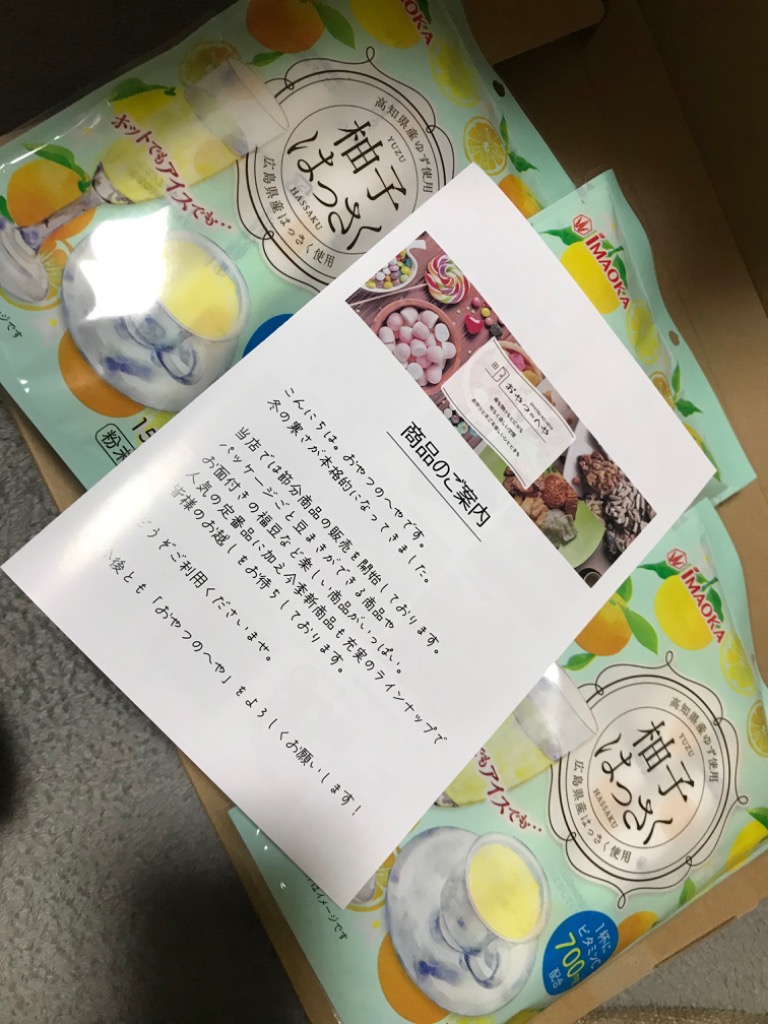 IMAOKA
高知県産ゆず使用
柚子
YUZU
はっさく
HASSAKU
広島県産はっさく使用
ホットでもアイスでも‥
粉末
IMAOKA
おやつのへや
商品のご案内
こんにちは。おやつのへやです。
冬の寒さが本格的になってきました。
当店では節分商品の販売を開始しております。
パッケージごと豆まきができる商品や
お面付きの福豆など楽しい商品がいっぱい。
人気の定番品に加え今季新商品も充実のラインナップで
皆様のお越しをお待ちしております。
どうぞご利用くださいませ。
後とも「おやつのへや」をよろしくお願いします!
IMAOKA
高知県産ゆず使用
柚子
YUZU
はっさく
HASSAKU
広島県産はっさく使用
でもアイスでも‥
1杯に
ビタミンC
700
配合
はイメージです